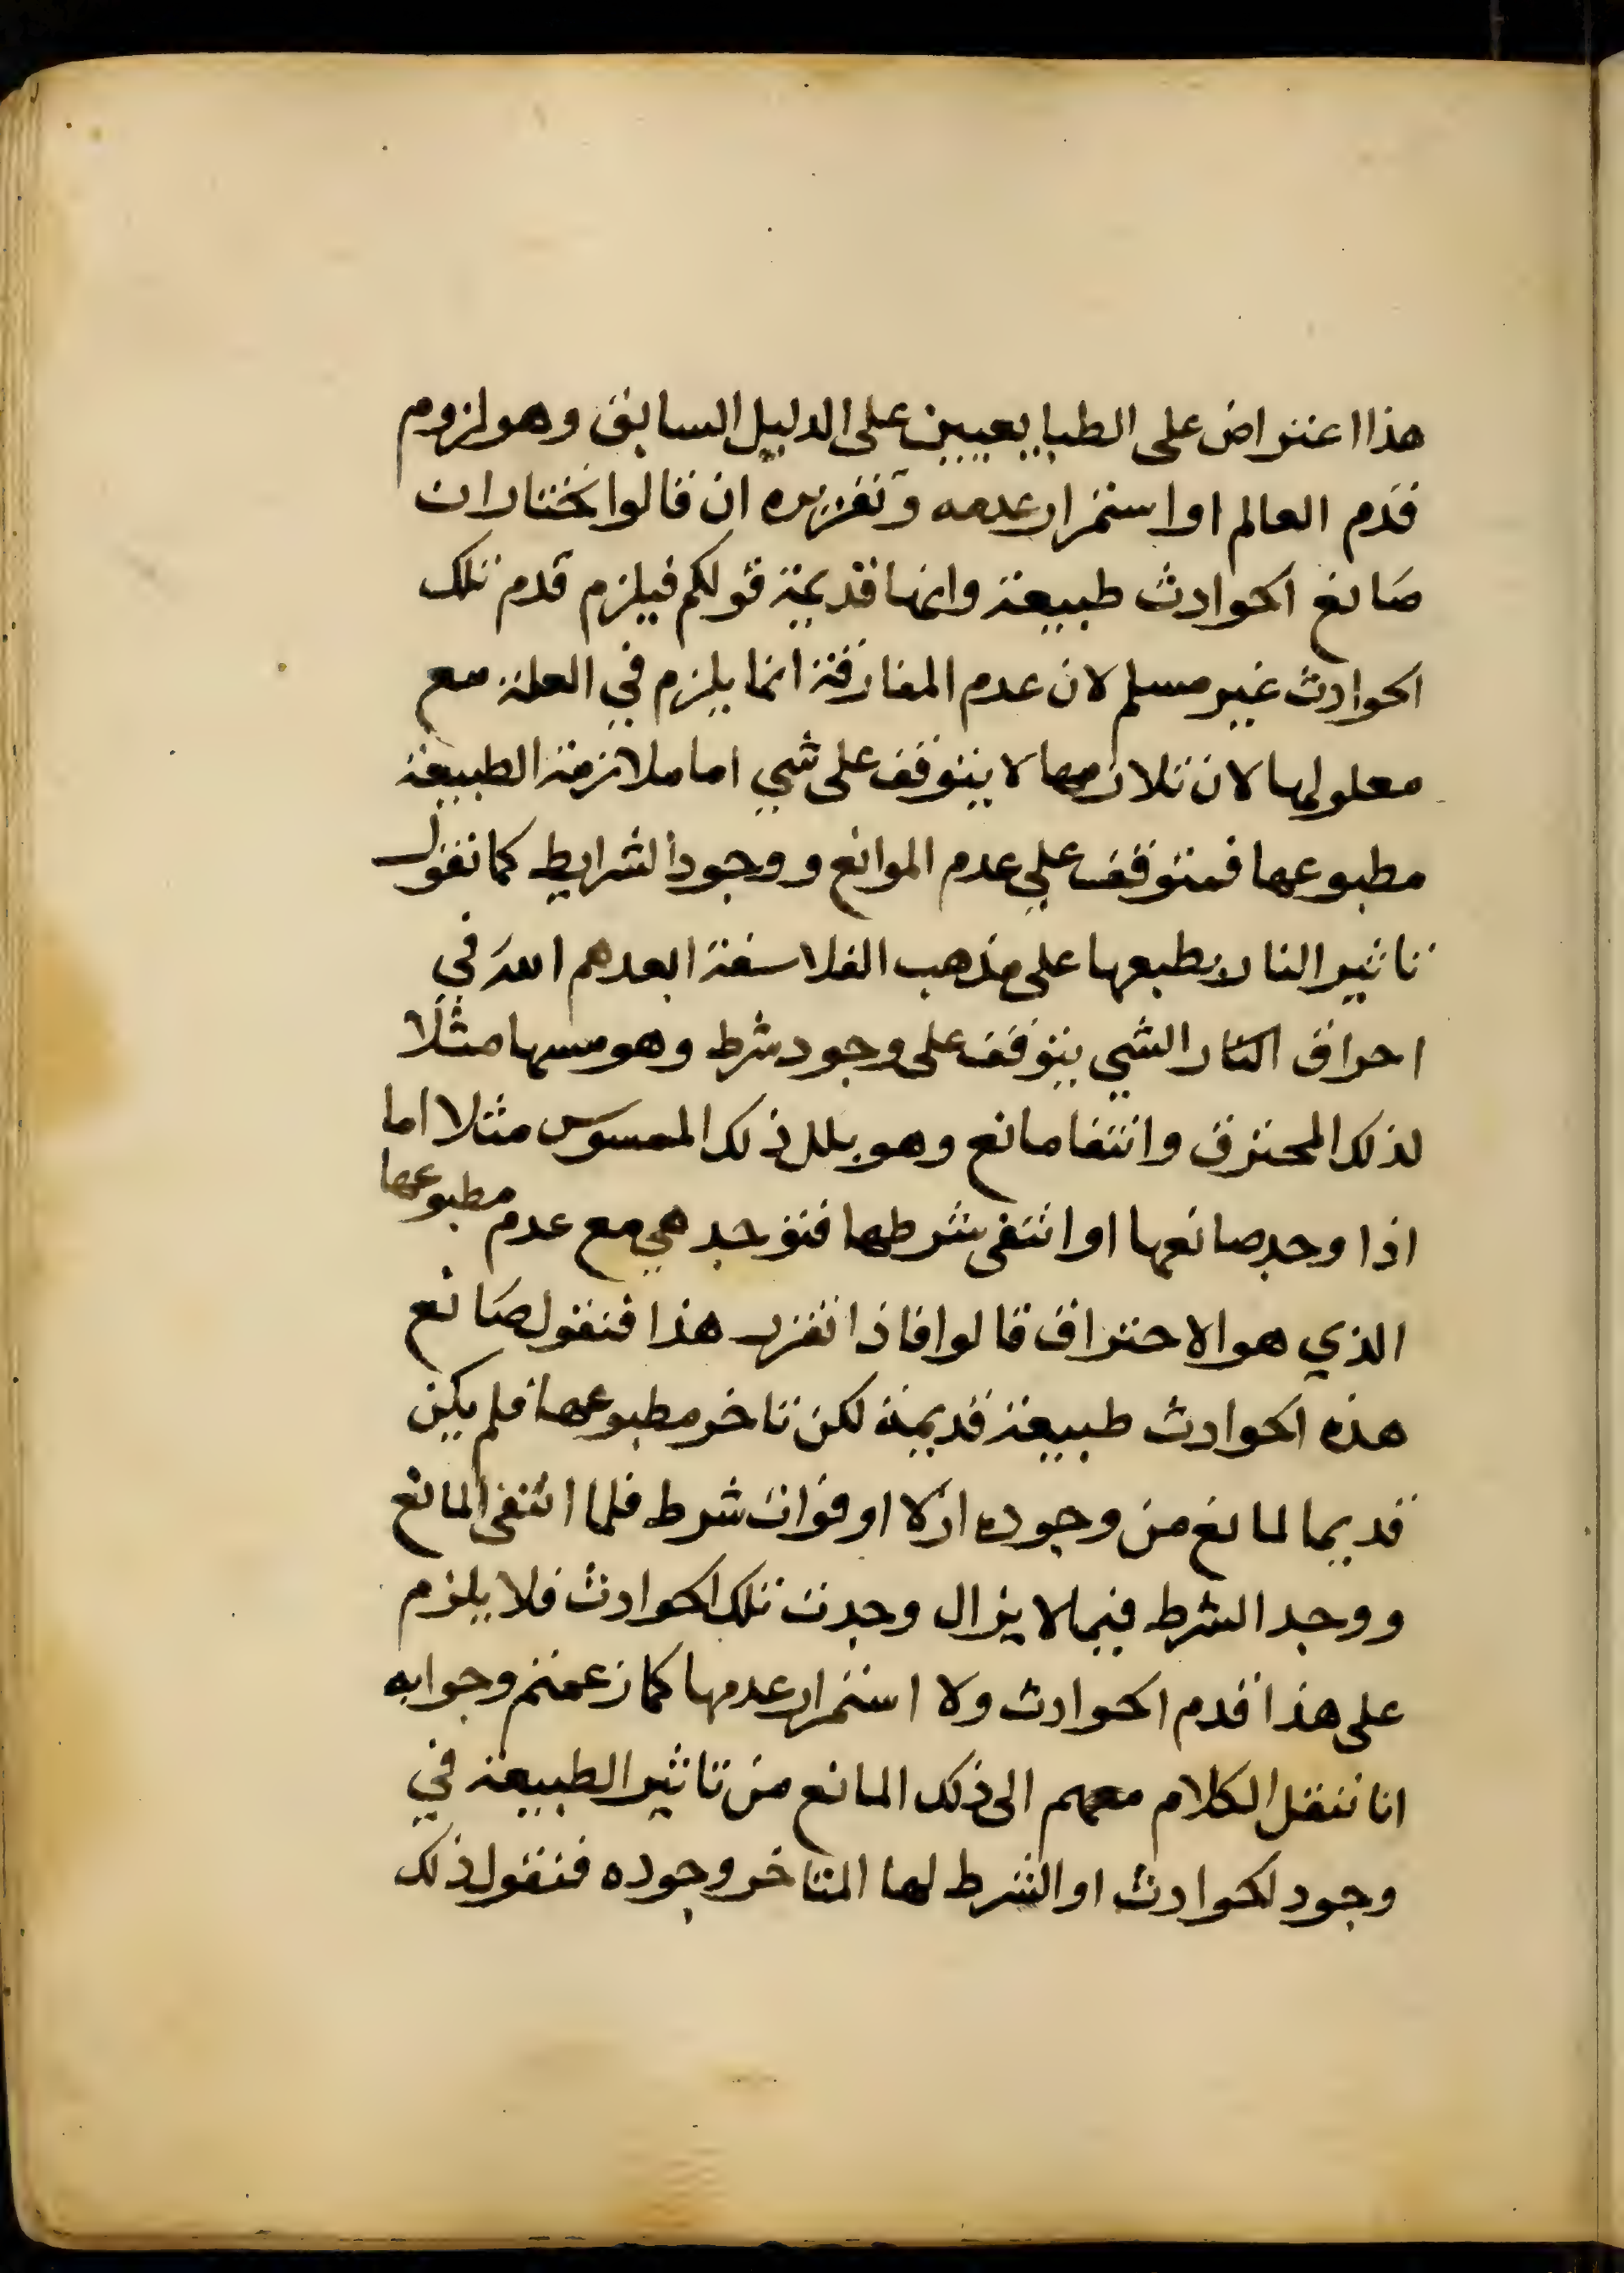 هذا اعتراض على الطبايعيين على الدليل السابق وهو لزوم
قدم العالم او استمرار عدمه وتقريره ان قالوا نختار ان
صانع الحوادث طبيعة وانها قديمة قولكم فيلزم قدم تلك
الحوادث غير مسلم لان عدم المفارقة انما يلزم في العلة مع
معلولها لان تلازمهما لا يتوقف على شي اما ملازمة الطبيعة
مطبوعها فيتوقف علي عدم الموانع ووجود الشرايط كما نقول
تاثير النار بطبعها على مذهب الفلاسفة ابعدهم الله في
احراق النار الشي يتوقف على وجود شرط وهو مسها مثلا
لذلك المحترق وانتفا مانع وهو بلل ذلك الممسوس مثلا اما
اذا وجد صانعها او انتفى شرطها فتوجد هي مع عدم مطبوعها
الذي هو الاحتراق قالوا فاذا تقرر هذا فنقول صانع
هذه الحوادث طبيعة قديمة لكن تاخر مطبوعها فلم يكن
قديما لمانع من وجوده ازلا او فوات شرط فلما انتفى المانع
ووجد الشرط فيما لا يزال وجدت تلك الحوادث فلا يلزم
على هذا قدم الحوادث ولا استمرار عدمها كما زعمتم وجوابه
انا ننقل الكلام معهم الى ذلك المانع من تاثير الطبيعة في
وجود لحوادث او الشرط لها المتاخر وجوده فنقول ذلك